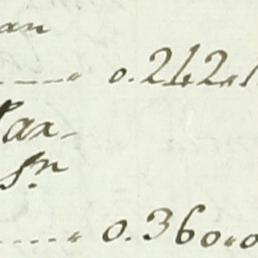 an
0.242.1
Pax-
sn
0.360.0